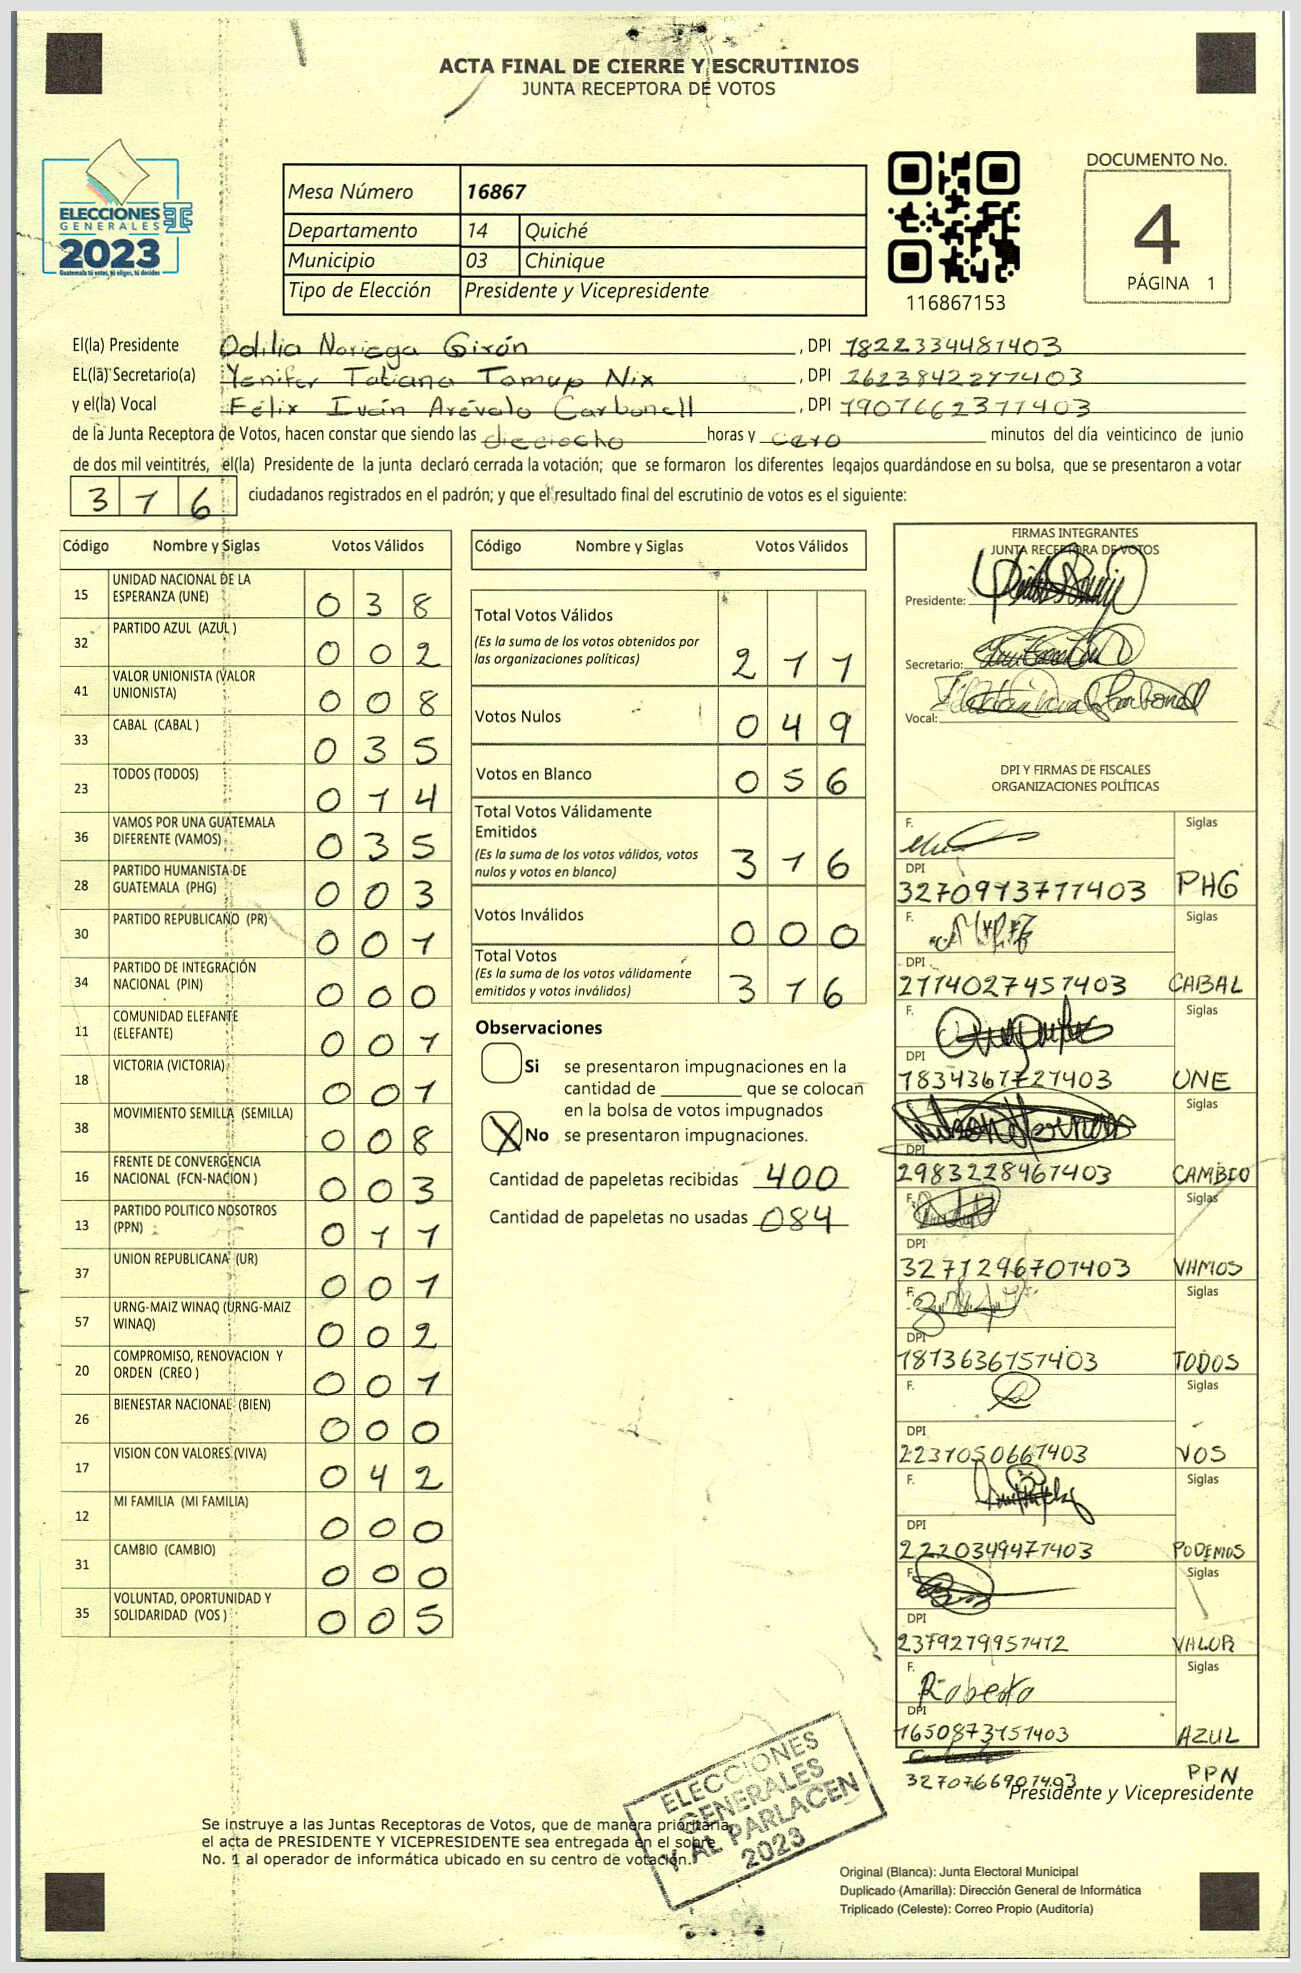 ACTA FINAL DE CIERRE Y ESCRUTINIOS
JUNTA RECEPTORA DE VOTOS
ELECCIONES
GENERALES
2023
Guatemala tú votas, tú eliges, tú decides
Mesa Número 16867
Departamento 14 Quiché
Municipio 03 Chinique
Tipo de Elección Presidente y Vicepresidente
116867153
DOCUMENTO No.
4
PÁGINA 1
El(la) Presidente Odilia Noriega Girón, DPI 1822334481403
EL(la) Secretario(a) Yenifer Tatiana Tamup Nix, DPI 2623842297403
y el(la) Vocal Félix Iván Arévalo Carbonell, DPI 1907662371403
de la Junta Receptora de Votos, hacen constar que siendo las dieciocho horas y cero minutos del día veinticinco de junio
de dos mil veintitrés, el(la) Presidente de la junta declaró cerrada la votación; que se formaron los diferentes legajos guardándose en su bolsa, que se presentaron a votar
316 ciudadanos registrados en el padrón; y que el resultado final del escrutinio de votos es el siguiente:
Código Nombre y Siglas Votos Válidos
15 UNIDAD NACIONAL DE LA ESPERANZA (UNE) 038
32 PARTIDO AZUL (AZUL ) 002
41 VALOR UNIONISTA (VALOR UNIONISTA) 008
33 CABAL (CABAL ) 035
23 TODOS (TODOS) 014
36 VAMOS POR UNA GUATEMALA DIFERENTE (VAMOS) 035
28 PARTIDO HUMANISTA DE GUATEMALA (PHG) 003
30 PARTIDO REPUBLICANO (PR) 001
34 PARTIDO DE INTEGRACIÓN NACIONAL (PIN) 000
11 COMUNIDAD ELEFANTE (ELEFANTE) 001
18 VICTORIA (VICTORIA) 001
38 MOVIMIENTO SEMILLA (SEMILLA) 008
16 FRENTE DE CONVERGENCIA NACIONAL (FCN-NACION ) 003
13 PARTIDO POLITICO NOSOTROS (PPN) 011
37 UNION REPUBLICANA (UR) 001
57 URNG-MAIZ WINAQ (URNG-MAIZ WINAQ) 002
20 COMPROMISO, RENOVACION Y ORDEN (CREO ) 001
26 BIENESTAR NACIONAL (BIEN) 000
17 VISION CON VALORES (VIVA) 042
12 MI FAMILIA (MI FAMILIA) 000
31 CAMBIO (CAMBIO) 000
35 VOLUNTAD, OPORTUNIDAD Y SOLIDARIDAD (VOS ) 005
Código Nombre y Siglas Votos Válidos
Total Votos Válidos
(Es la suma de los votos obtenidos por
las organizaciones políticas) 211
Votos Nulos 049
Votos en Blanco 056
Total Votos Válidamente
Emitidos
(Es la suma de los votos válidos, votos
nulos y votos en blanco) 316
Votos Inválidos 000
Total Votos
(Es la suma de los votos válidamente
emitidos y votos inválidos) 316
Observaciones
Si se presentaron impugnaciones en la
cantidad de ________ que se colocan
en la bolsa de votos impugnados
X No se presentaron impugnaciones.
Cantidad de papeletas recibidas 400
Cantidad de papeletas no usadas 084
FIRMAS INTEGRANTES
JUNTA RECEPTORA DE VOTOS
Presidente:
Secretario:
Vocal:
DPI Y FIRMAS DE FISCALES
ORGANIZACIONES POLÍTICAS
F. Siglas
DPI
3270973771403 PHG
F. Siglas
DPI
2114027451403 CABAL
F. Siglas
DPI
1834367721403 UNE
Siglas
DPI
2983228461403 CAMBIO
F. Siglas
DPI
3271296701403 VAMOS
F. Siglas
DPI
1813636151403 TODOS
F. Siglas
DPI
2231050661403 VOS
F. Siglas
DPI
2220349471403 PODEMOS
F. Siglas
DPI
2379279951412 VALOR
F. Roberto Siglas
DPI
1650873151403 AZUL
3270766901403 PPN
Presidente y Vicepresidente
ELECCIONES
GENERALES
Y AL PARLACEN
2023
Se instruye a las Juntas Receptoras de Votos, que de manera prioritaria,
el acta de PRESIDENTE Y VICEPRESIDENTE sea entregada en el sobre
No. 1 al operador de informática ubicado en su centro de votación.
Original (Blanca): Junta Electoral Municipal
Duplicado (Amarilla): Dirección General de Informática
Triplicado (Celeste): Correo Propio (Auditoría)